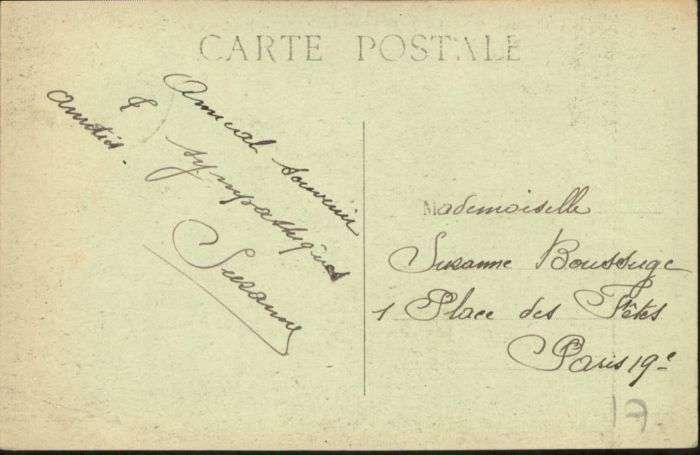 CARTE POSTALE
Amical souvenir
& sympathiques
amitiés.
Suzanne
Mademoiselle
Suzanne Boussuge
1 Place des Fêtes
Paris 19e
17